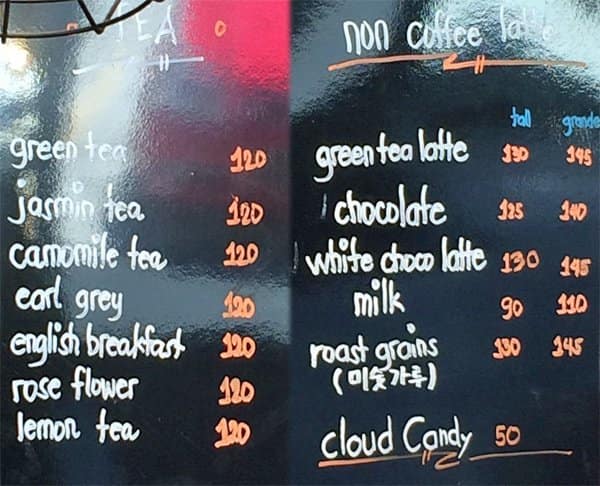 TEA
green tea 120
jasmin tea 120
camomile tea 120
earl grey 120
english breakfast 120
rose flower 120
lemon tea 120
non coffee latte
tall grande
green tea latte 130 145
chocolate 125 140
white choco latte 130 145
milk 90 110
roast grains 130 145
(미숫가루)
cloud Candy 50